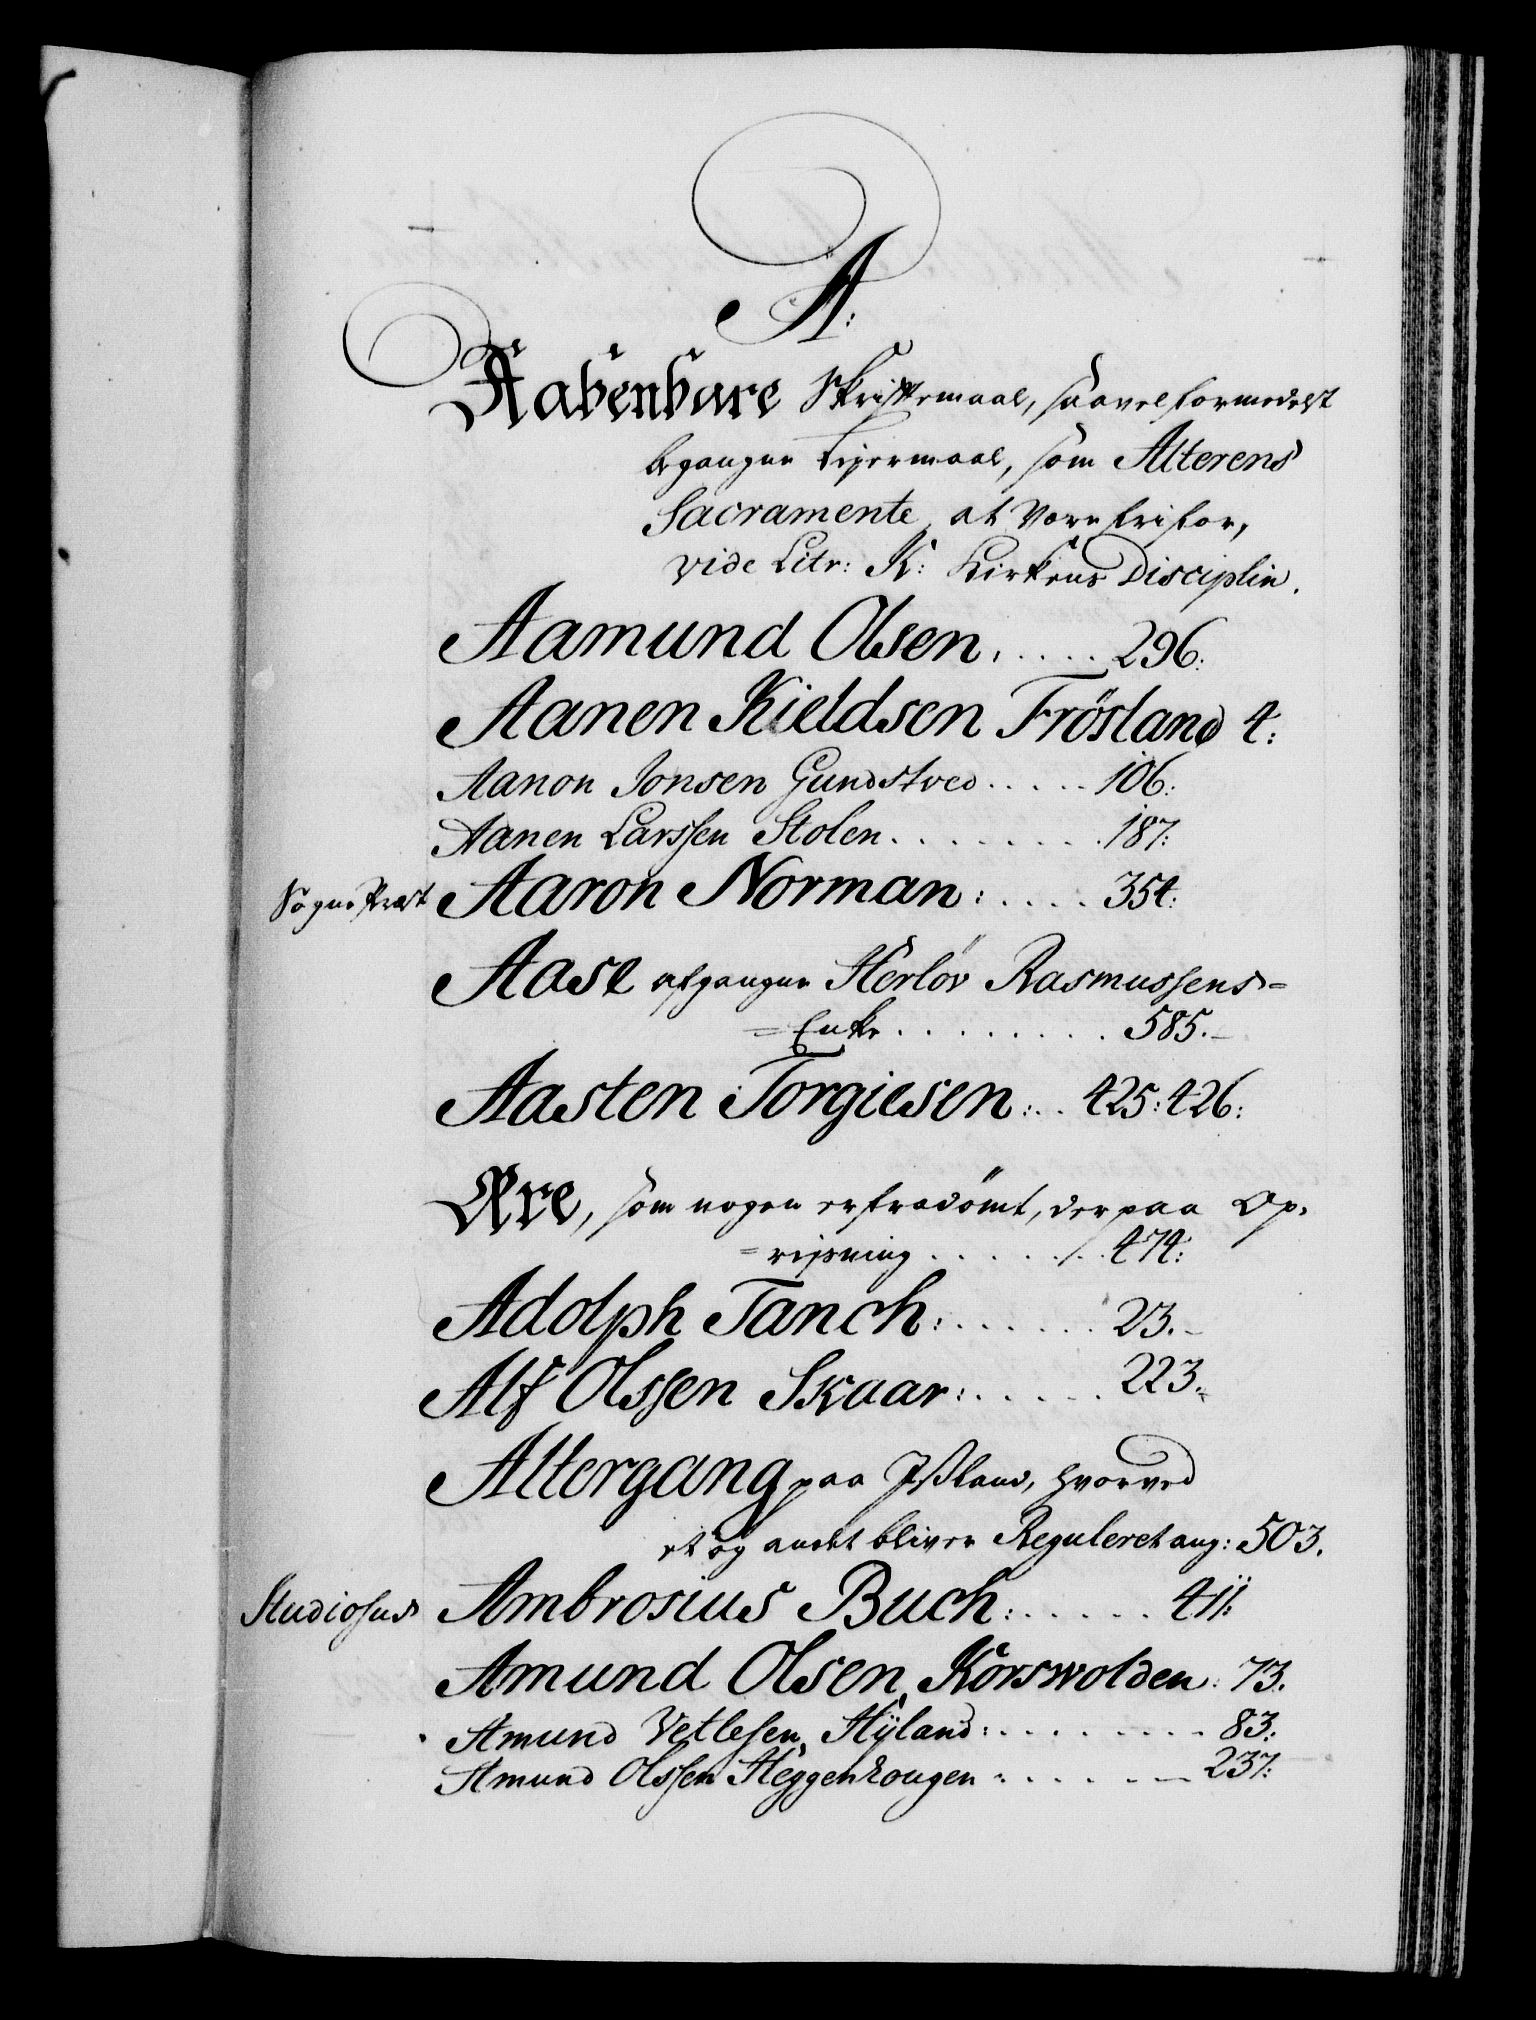 A:
Aabenbare Skriftemaal, saavel formedelst
begangne Leyermaal, som Alterens
Sacramente, at være fri for,
vide Litr: K: Kirkens Disciplin.
Aamund Olsen, . . . . 296:
Aanen Kieldsen Frösland 4:
Aanon Jonsen Gundstved . . . . . 106:
Aanen Larssen Stolen . . . . . . . . 187:
Sogne Præst Aaron Norman: . . . . 354:
Aase afgangne Herlöv Rasmussens=
=Enke . . . . . . . . 585.
Aasten Torgiesen: . . 425: 426:
Ære, som nogen er fradömt, derpaa Op=
=reisning . . . . . . . 474:
Adolph Tanch: . . . . . . 23.
Alf Olssen Skaar: . . . . . 223.
Altergang paa Island, hvorved
et og andet bliver Reguleret ang: 503.
Studiosus Ambrosius Buch: . . . . . 411:
Amund Olsen Korswolden: 73.
Amund Vetlesen Hÿland: . . . . . . . . 83:
Amund Olssen Heggenhougen . . . . . . 237: